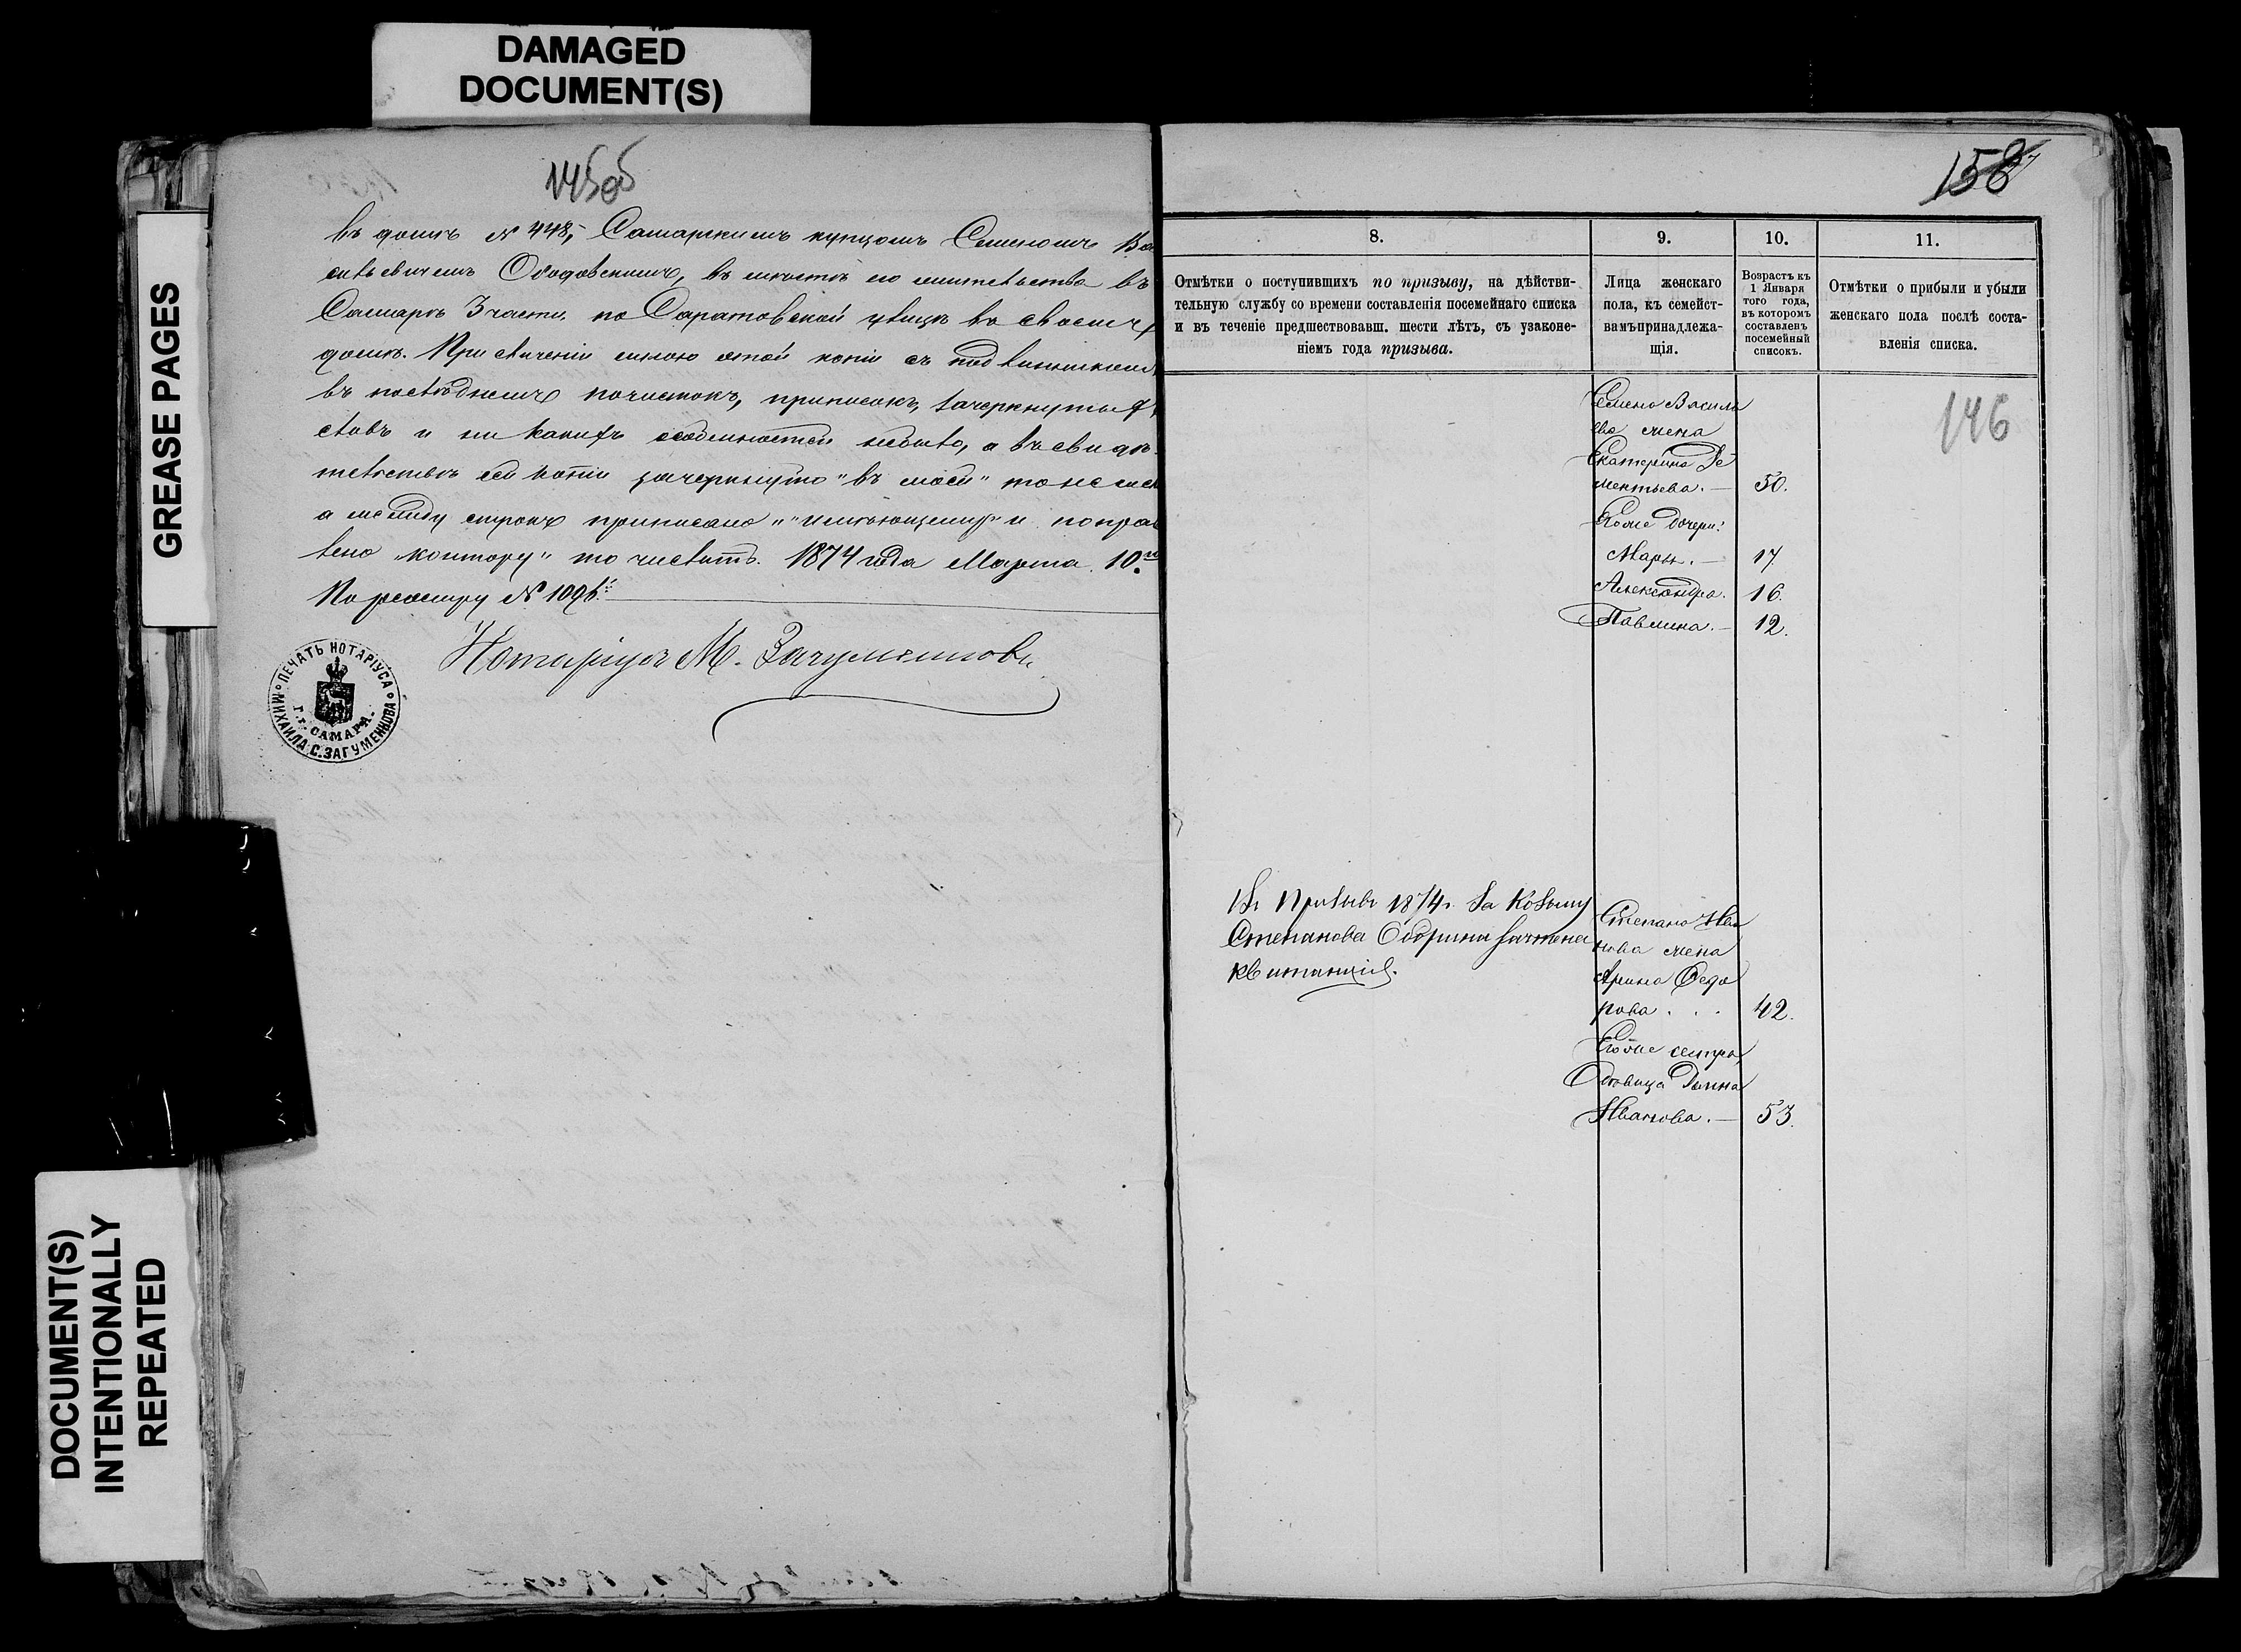 DAMAGED
DOCUMENT(S)
GREASE PAGES
DOCUMENT(S)
INTENTIONALLY
REPEATED
145об
въ домѣ № 448, Самарскимъ купцомъ Семеномъ Ва
сильевичемъ въ мѣстѣ его жительства въ
Самарѣ 3 части, по Саратовской улицѣ въ своемъ
домѣ. При сличеніи мною этой копіи съ подлинникомъ
въ послѣднемъ почистокъ, приписокъ, зачеркнутыхъ
словъ и ни какихъ особенностей небыло, а въ свидѣ
тельствѣ сей копіи зачеркнуто „въ моей" то не
а между строкъ приписано „имѣющему" и поправ
лено „контору" то числитъ. 1874 года Марта 10.го
По реестру № 1096.
Нотаріусъ М. Загуменновъ
ПЕЧАТЬ НОТАРІУСА
МИХАИЛА С. ЗАГУМЕННОВА
Г. САМАРА.
158
8.
9.
10.
11.
Отмѣтки о поступившихъ по призыву, на дѣйстви-
тельную службу со времени составленія посемейнаго списка
и въ теченіе предшествовавш. шести лѣтъ, съ узаконе-
ніемъ года призыва.
Лица женскаго
пола, къ семейст-
вамъ принадлежа-
щія.
Возрастъ къ
1 Января
того года,
въ которомъ
составленъ
посемейный
списокъ.
Отмѣтки о прибыли и убыли
женскаго пола послѣ соста-
вленія списка.
146
Семена Василь
ева жена
Екатерина Де
ментьева. — 50.
Егоже дочери:
Марья. — 17.
Александра. 16.
Павлина. — 12.
Въ Призывъ 1874 г. за Козьму
Степанова зачтена
квитанція.
Степана Ива
нова жена
Арина Федо
рова . . . 42.
Егоже сестра,
вдовица
Иванова. — 53.